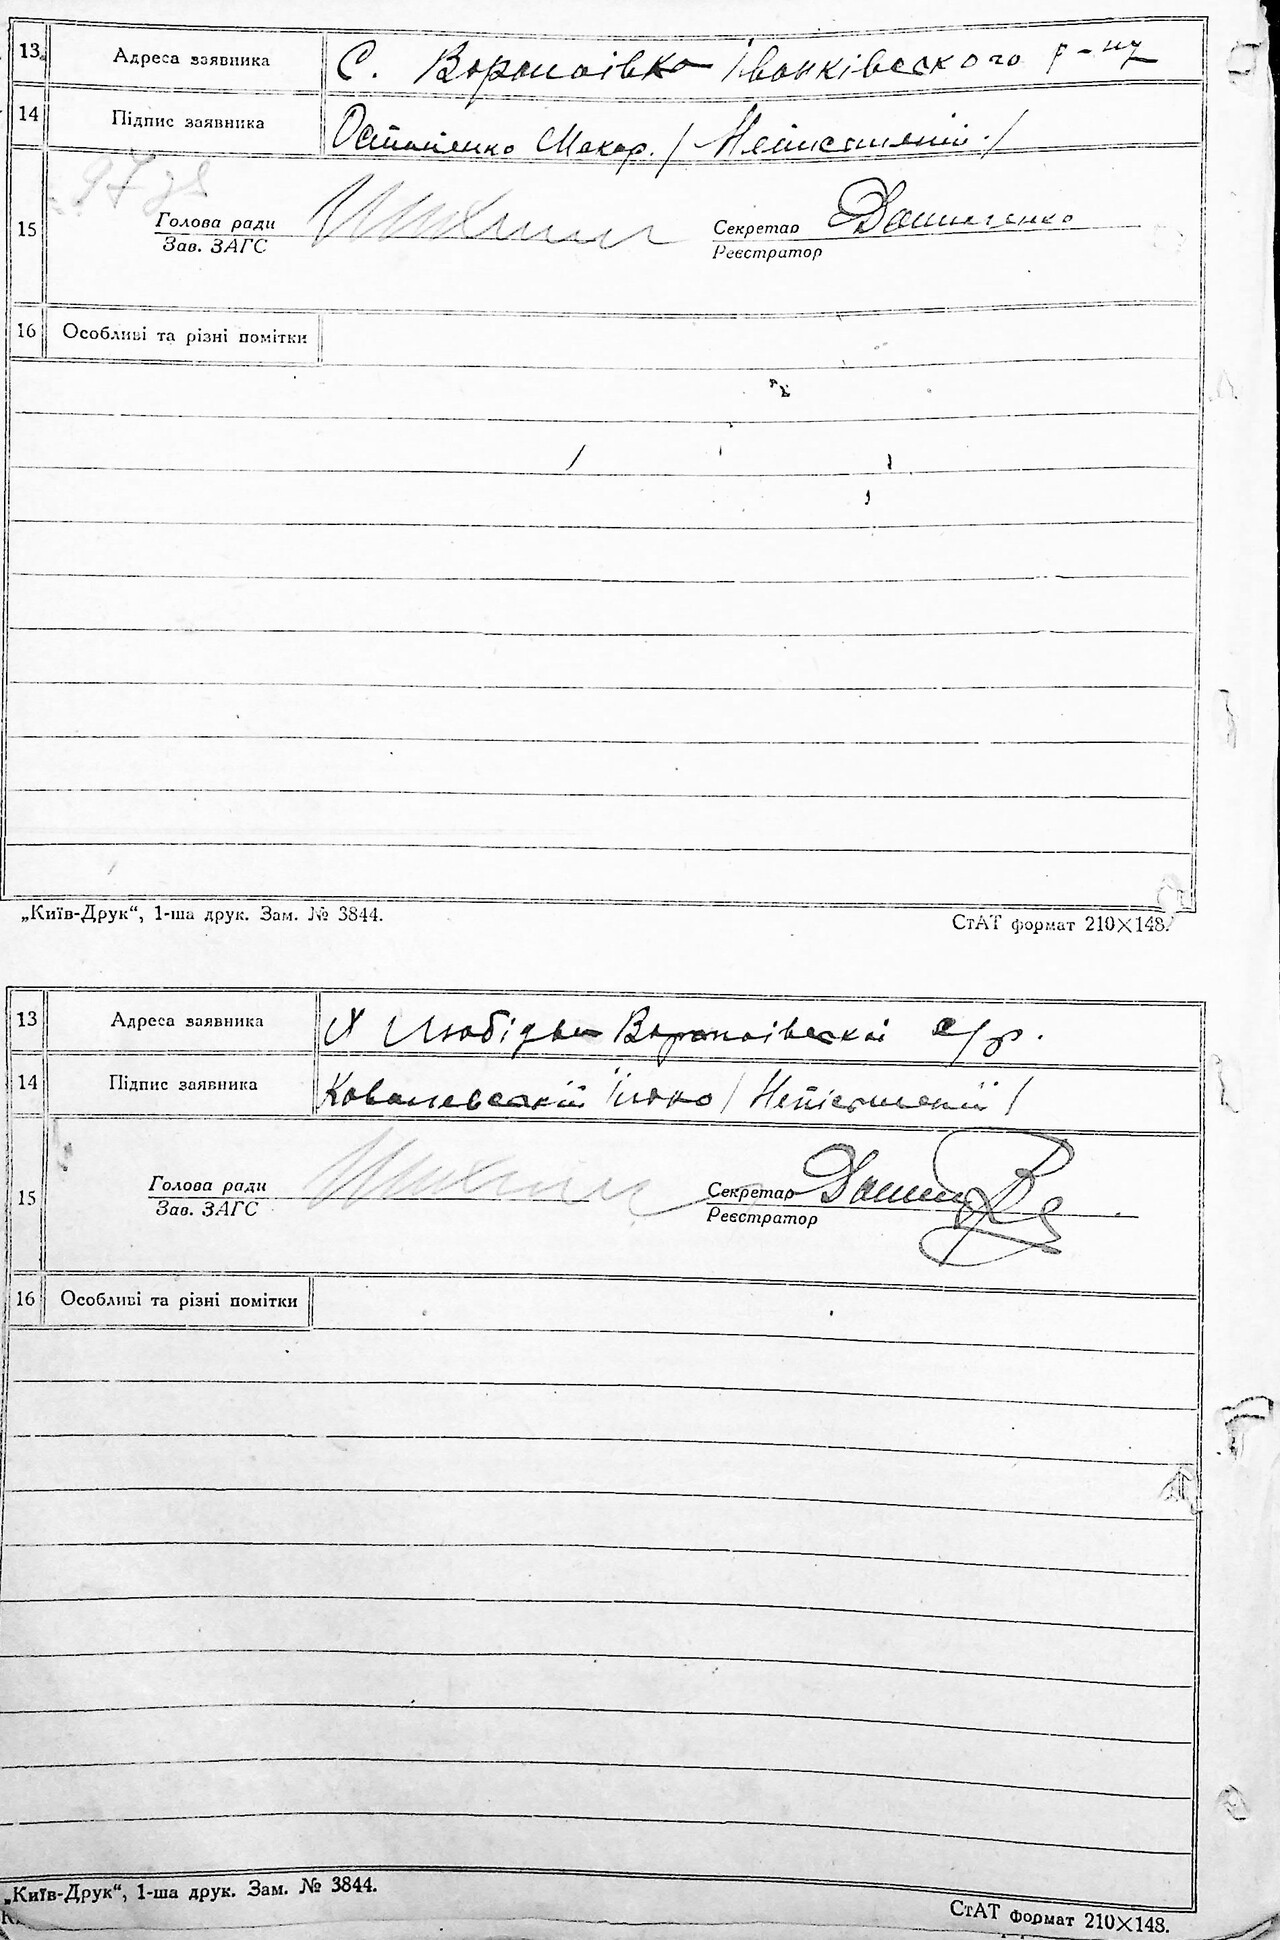 13. Адреса заявника С. Воропаївка Іванківского р-ну
14 Підпис заявника Остапенко Макар. / Неписьмений. /
97
15 Голова ради Секретар Данигенко
Зав. ЗАГС Реєстратор
16 Особливі та різні помітки
„Київ-Друк“, 1-ша друк. Зам. № 3844. СтАТ формат 210×148.
13 Адреса заявника Х Воропаівскої с/р.
14 Підпис заявника Ковалевский Ілько / Неписьмений /
15 Голова ради Секретар
Зав. ЗАГС Реєстратор
16 Особливі та різні помітки
„Київ-Друк“, 1-ша друк. Зам. № 3844. СтАТ формат 210×148.